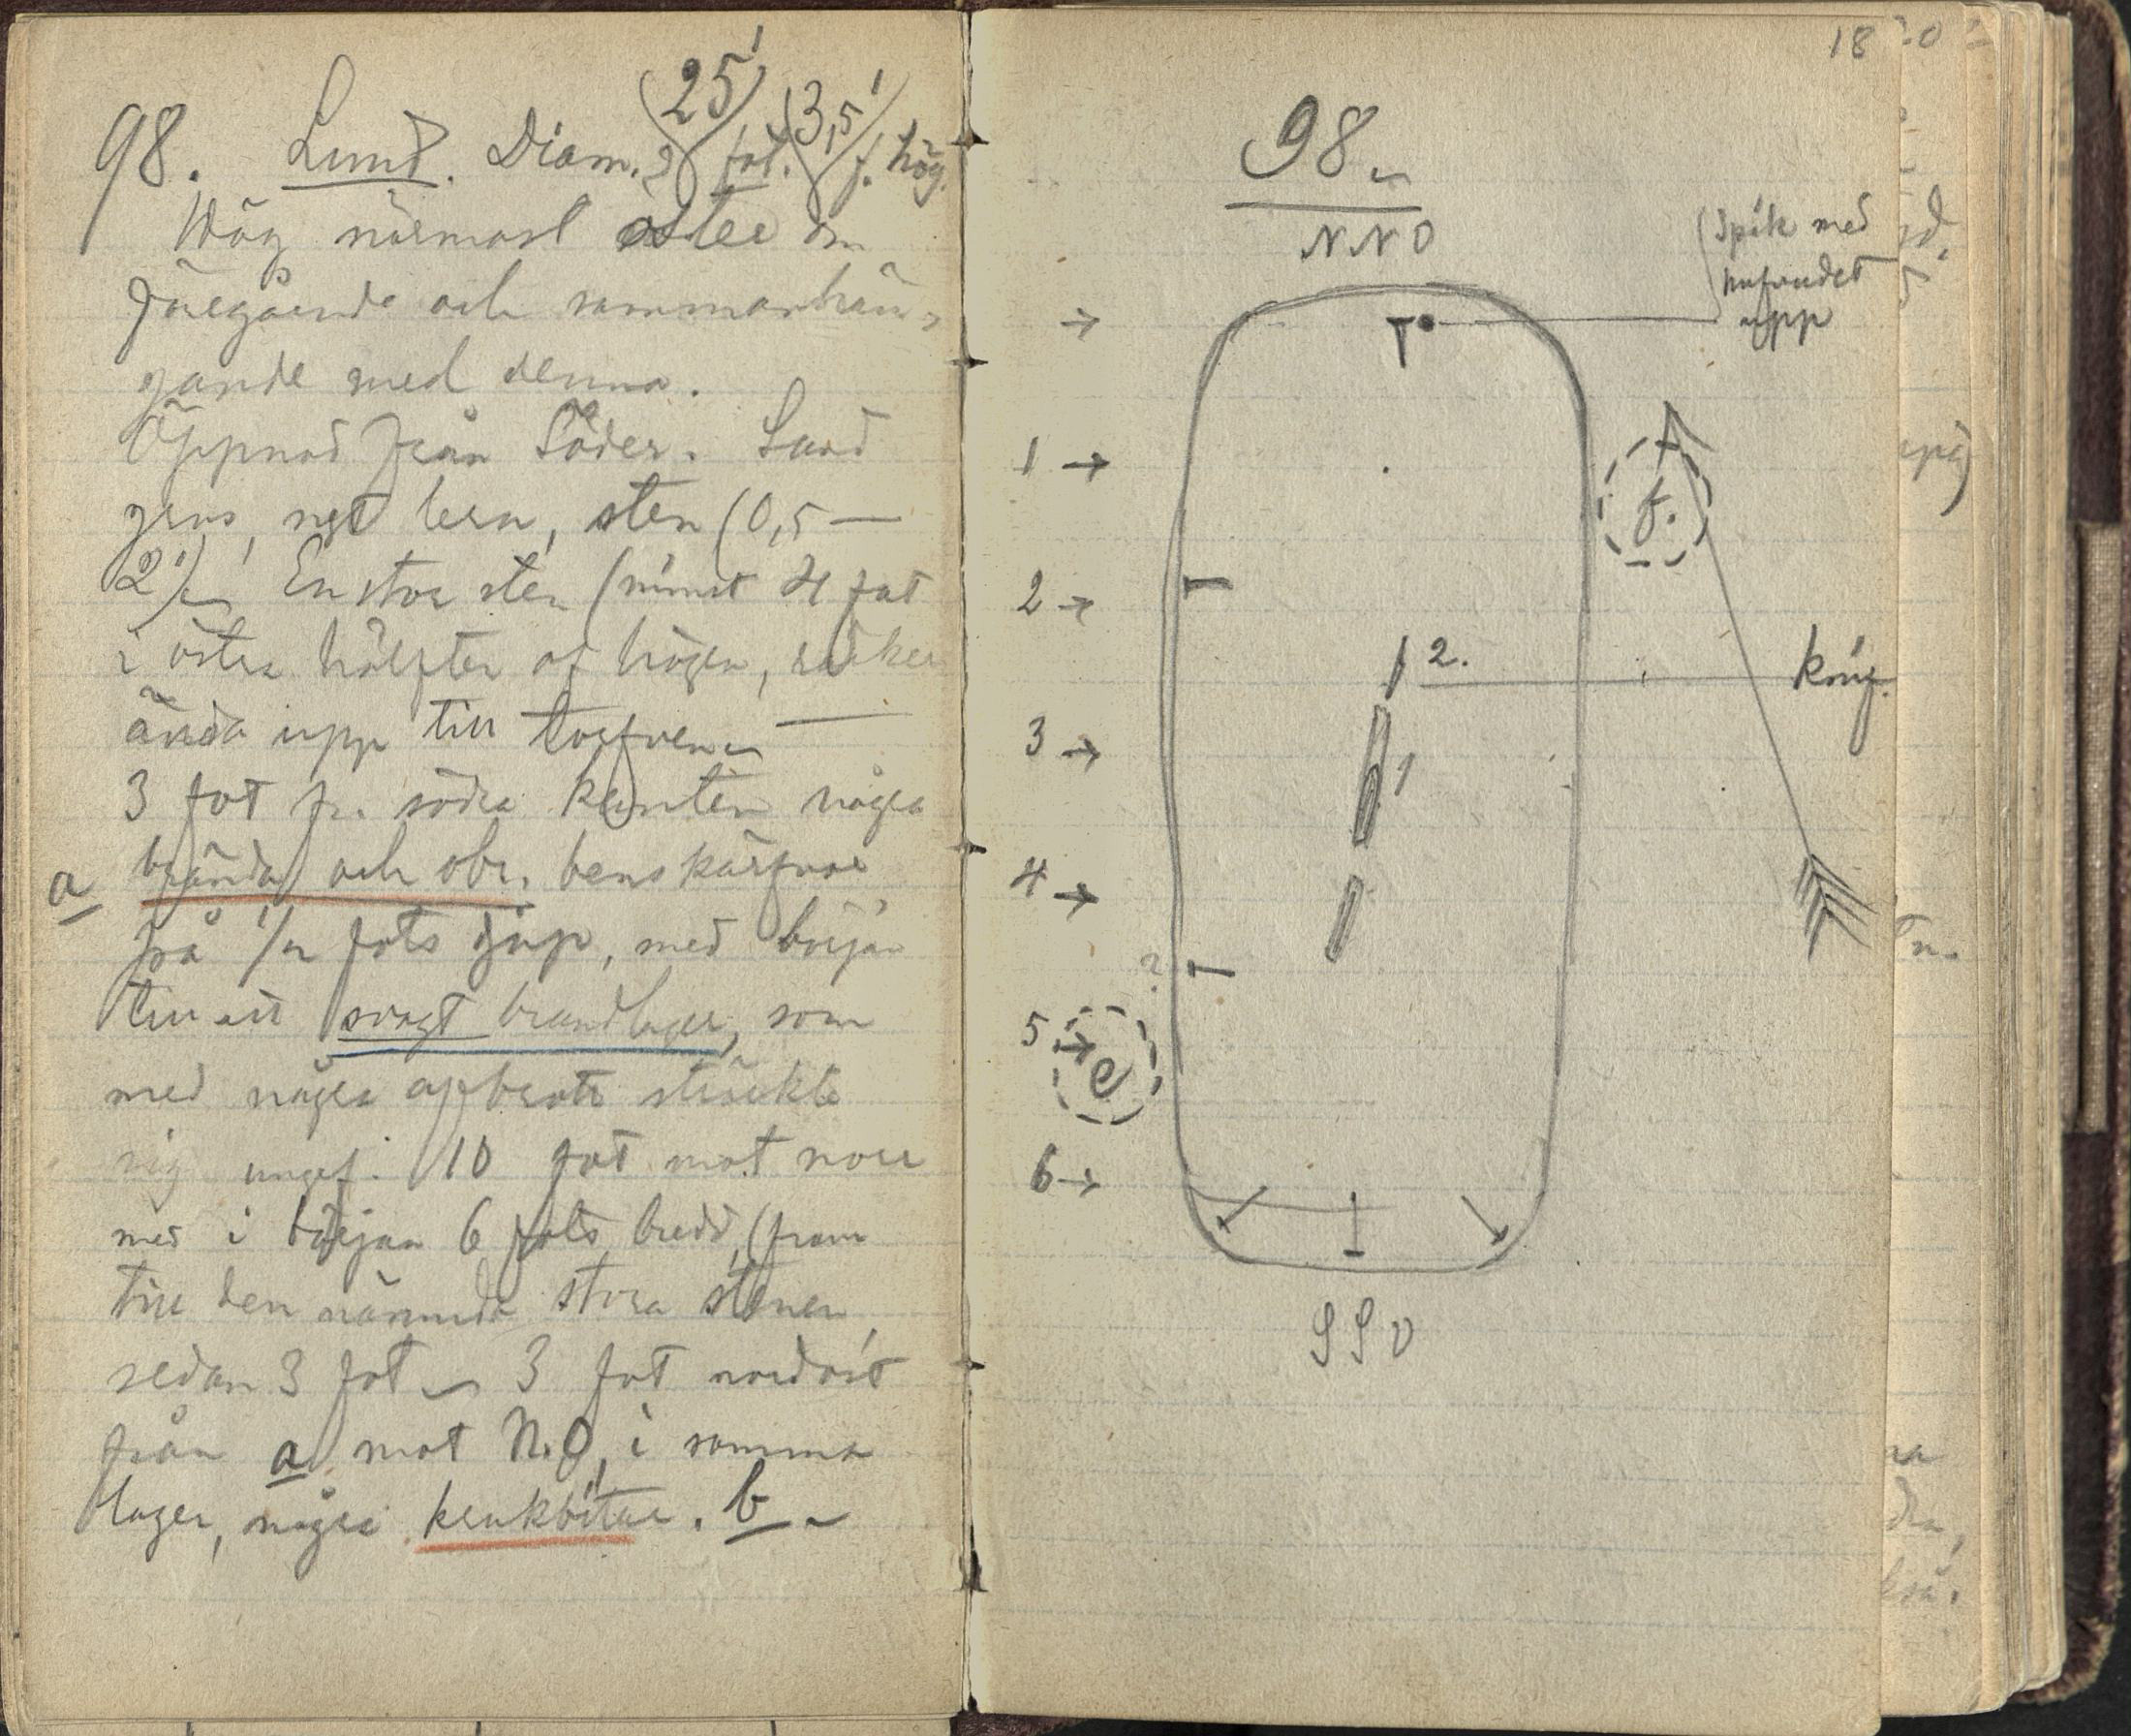 98. Lund. Diam. (25') fot. (3,5') f. hög.
Hög närmast öster om
föregående och sammanhän-
gande med denna.
Öppnad från Söder. Sand
grus, ngt lera, sten (0,5 —
2') En stor sten (minst 4 fot
i östra hälften af högen, räcker
ända upp till torfven —
3 fot fr. södra kanten några
a brända och obr. benskärfvor
på 1/2 fots djup, med början
till ett svagt brandlager, som
med några afbrott sträckte
sig ungef. 10 fot mot norr
med i början 6 fots bredd, (fram
till den nämnda stora stenen,
sedan 3 fot 3 fot nordost
från a mot N.O, i samma
lager, några krukbitar. b
18
98
NNO
Spik med
hufvudet
upp
1
f.
2
2.
knif.
3
1
4
?
5
e
6
SSV